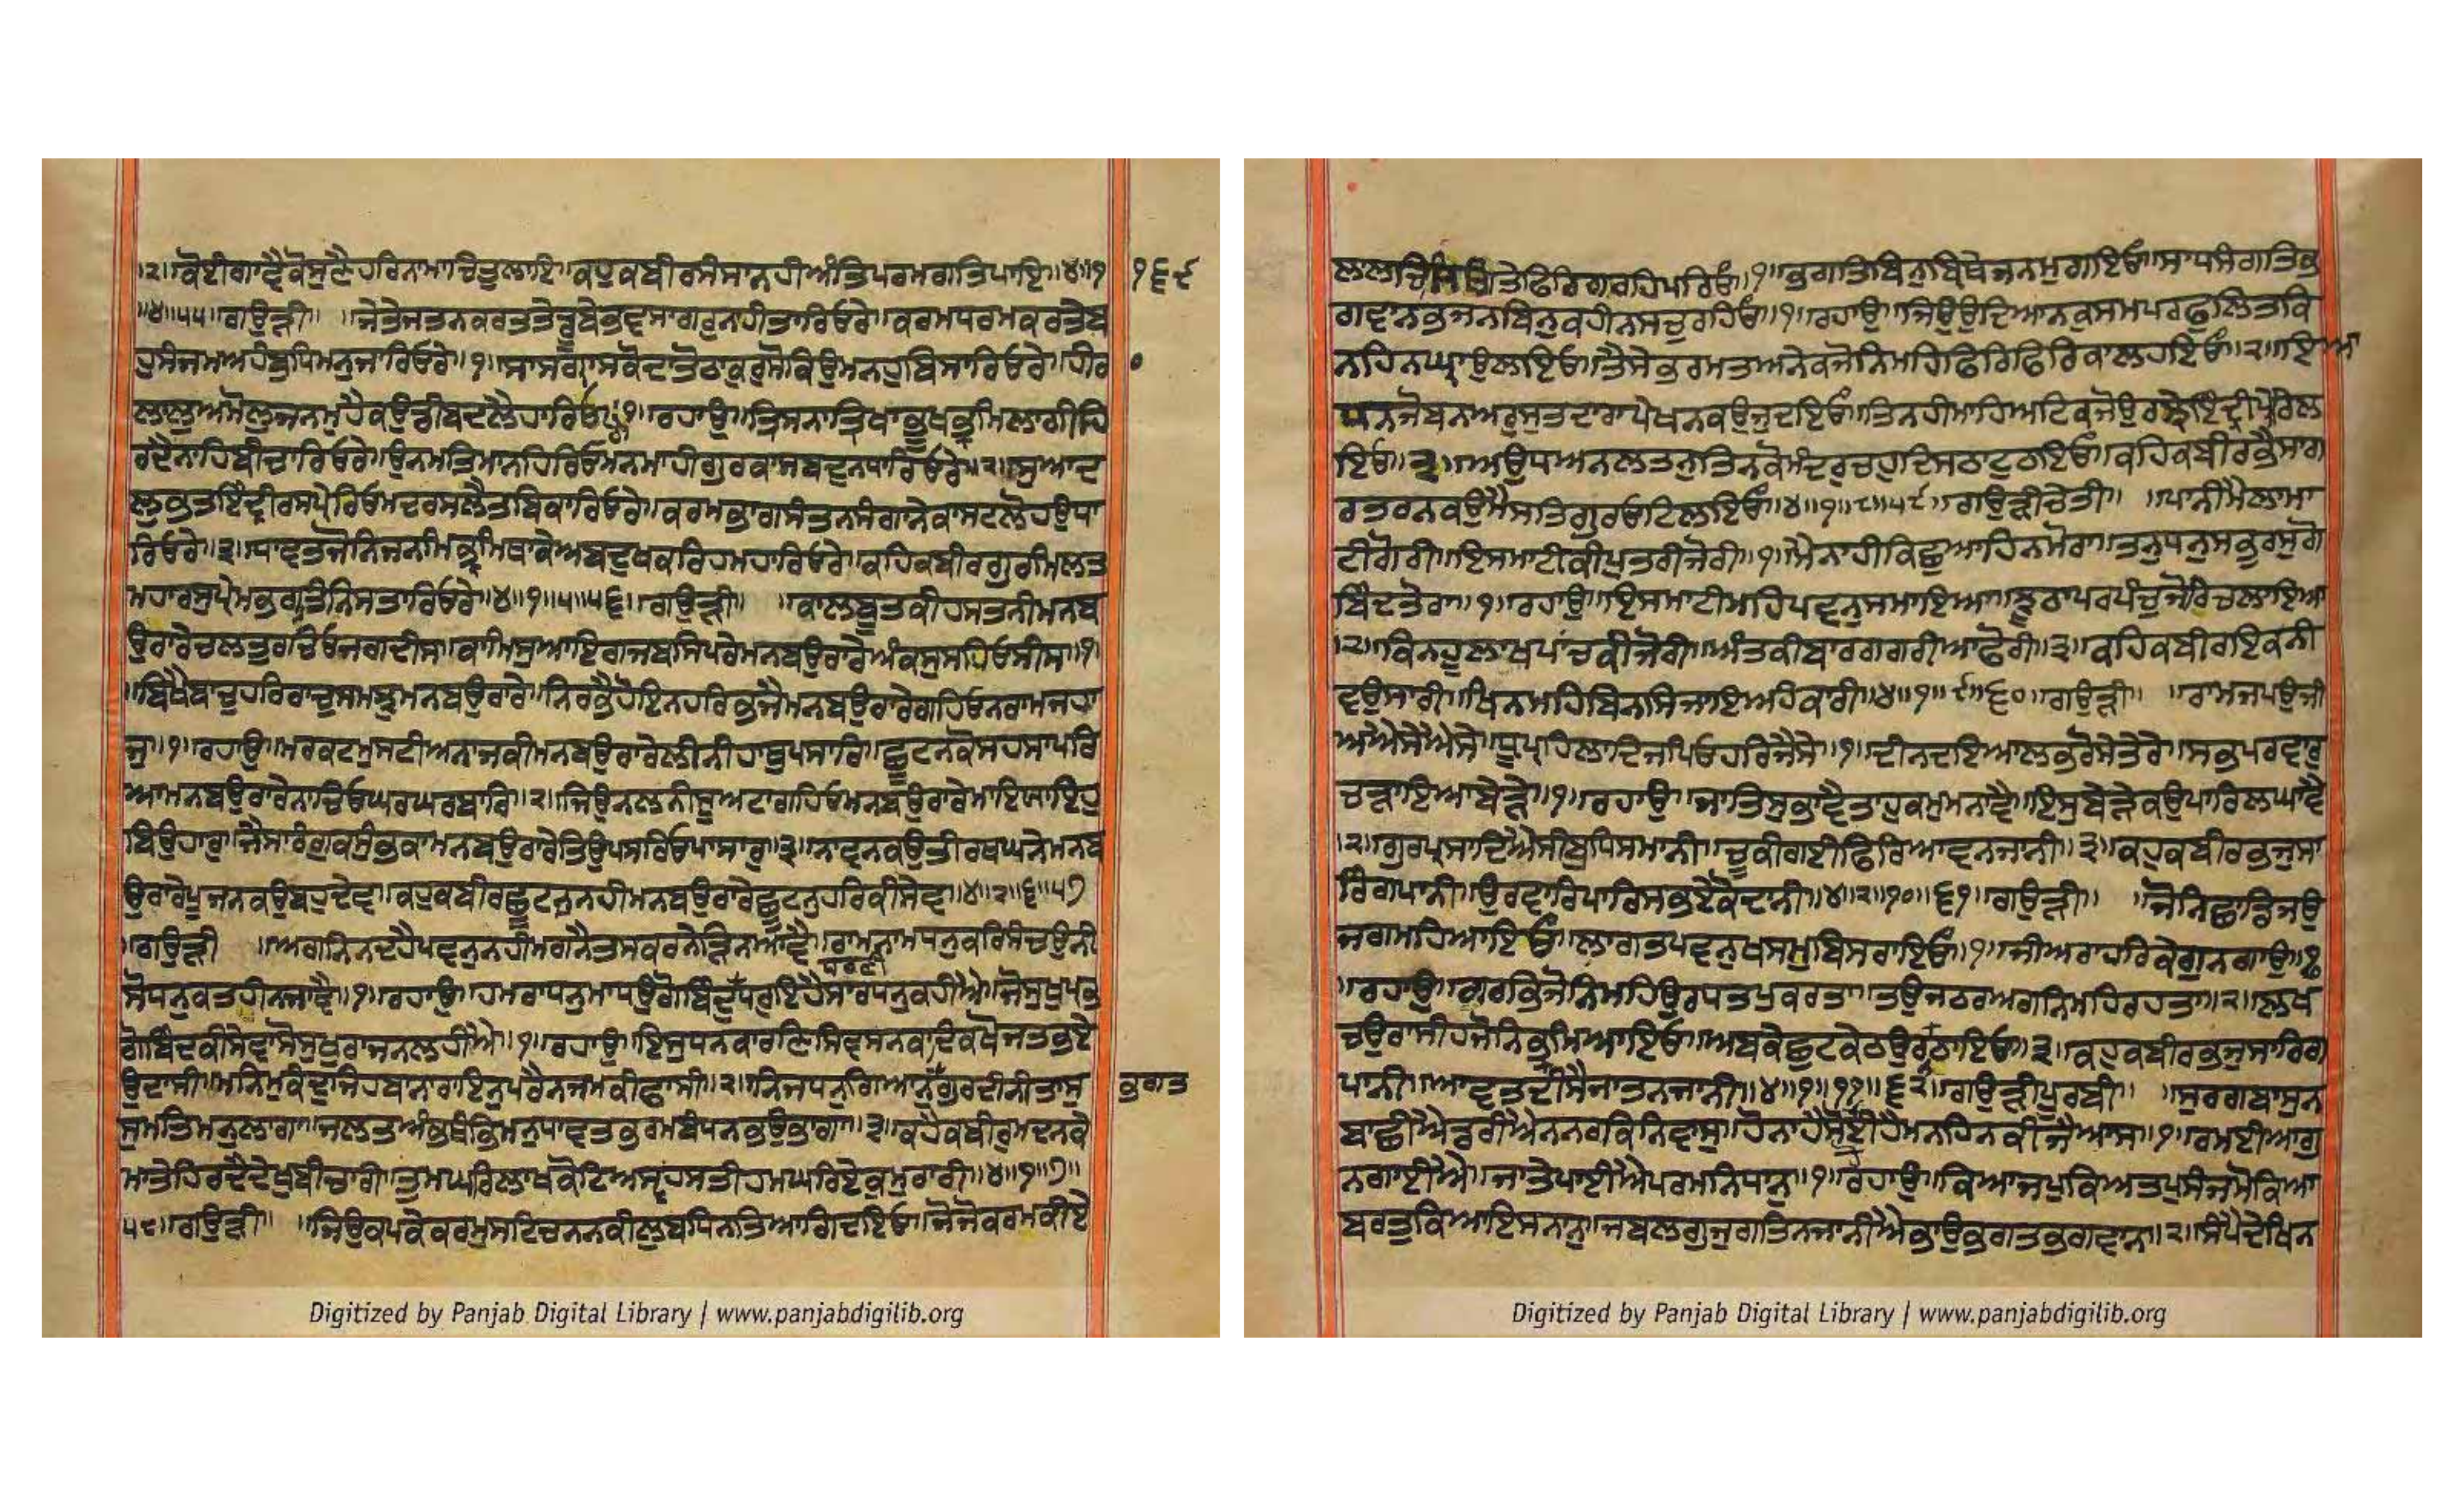 ।੨।ਕੋਈਗਾਵੈਕੋਸੁਣੈਹਰਿਨਾਮਾਚਿਤੁਲਾਇ॥ਕਹੁਕਬੀਰਸੰਸਾਨਹੀਅੰਤਿਪਰਮਗਤਿਪਾਇ॥੪॥੧
॥੪॥੫੫॥ਗਉੜੀ॥ ॥ਜੇਤੇਜਤਨਕਰਤਤੇਡੂਬੇਭਵਸਾਗਰੁਨਹੀਤਾਰਿਓਰੇ॥ਕਰਮਧਰਮਕਰਤੇਬ
ਹੁਸੰਜਮਅਹੰਬੁਧਿਮਨੁਜਾਰਿਓਰੇ॥੧॥ਸਾਸਗ੍ਰਾਸਕੋਦਾਤੋਠਾਕੁਰੁਸੋਕਿਉਮਨਹੁਬਿਸਾਰਿਓਰੇ॥ਹੀਰ
ਲਾਲੁਅਮੋਲੁਜਨਮੁਹੈਕਉਡੀਬਦਲੈਹਾਰਿਓ॥੧॥ਰਹਾਉ॥ਤ੍ਰਿਸਨਾਤ੍ਰਿਖਾਭੂਖਭ੍ਰਮਿਲਾਗੀਹਿ
ਰਦੈਨਾਹਿਬੀਚਾਰਿਓਰੇ॥ਉਨਮਤਿਮਾਨਹਿਰਿਓਮਨਮਾਹੀਗੁਰਕਾਸਬਦਨਧਾਰਿਓਰੇ॥੨॥ਸੁਆਦ
ਲੁਭਤਇੰਦ੍ਰੀਰਸਪ੍ਰੇਰਿਓਮਦਰਸਲੈਤਬਿਕਾਰਿਓਰੇ॥ਕਰਮਭਾਗਸੰਤਨਸੰਗਾਨੇਕਾਸਟਲੋਹਉਧਾ
ਰਿਓਰੇ॥੩॥ਧਾਵਤਜੋਨਿਜਨਮਿਭ੍ਰਮਿਥਾਕੇਅਬਦੁਖਕਰਿਹਮਹਾਰਿਓਰੇ॥ਕਹਿਕਬੀਰਗੁਰਮਿਲਤ
ਮਹਾਰਸੁਪ੍ਰੇਮਭਗਤਿਨਿਸਤਾਰਿਓਰੇ॥੪॥੧॥੫॥੫੬॥ਗਉੜੀ॥ ॥ਕਾਲਬੂਤਕੀਹਸਤਨੀਮਨਬ
ਉਰਾਰੇਚਲਤੁਰਚਿਓਜਗਦੀਸ॥ਕਾਮਸੁਆਇਗਜਬਸਿਪਰੇਮਨਬਉਰਾਰੇਅੰਕਸੁਸਹਿਓਸੀਸ॥੧॥
॥ਬਿਖੈਬਾਚੁਹਰਿਰਾਚੁਸਮਝੁਮਨਬਉਰਾਰੇ॥ਨਿਰਭੈਹੋਇਨਹਰਿਭਜੈਮਨਬਉਰਾਰੇਗਹਿਓਨਰਾਮਜਹਾ
ਜੁ॥੧॥ਰਹਾਉ॥ਮਰਕਟਮੁਸਟੀਅਨਾਜਕੀਮਨਬਉਰਾਰੇਲੀਨੀਹਾਥੁਪਸਾਰਿ॥ਛੂਟਨਕੋਸਹਸਾਪਰਿ
ਆਮਨਬਉਰਾਰੇਨਾਚਿਓਘਰਘਰਬਾਰਿ॥੨॥ਜਿਉਨਲਨੀਸੂਅਟਾਗਹਿਓਮਨਬਉਰਾਰੇਮਾਇਆਇਹੁ
ਬਿਉਹਾਰੁ॥ਜੈਸਾਰੰਗੁਕਸੁੰਭਕਾਮਨਬਉਰਾਰੇਤਿਉਪਸਰਿਓਪਾਸਾਰੁ॥੩॥ਨਾਵਨਕਉਤੀਰਥਘਨੇਮਨਬ
ਉਰਾਰੇਪੂਜਨਕਉਬਹੁਦੇਵ॥ਕਹੁਕਬੀਰਛੂਟਨੁਨਹੀਮਨਬਉਰਾਰੇਛੂਟਨੁਹਰਿਕੀਸੇਵ॥੪॥੨॥੬॥੫੭
॥ਗਉੜੀ ॥ਅਗਨਿਨਦਹੈਪਵਨੁਨਹੀਮਗਨੈਤਸਕਰਨੇੜਿਨਆਵੈ॥ਰਾਮਨਾਮਧਨੁਕਰਿਸੰਚਉਨੀ
ਸੋਧਨੁਕਤਹੀਨਜਾਵੈ॥੧॥ਰਹਾਉ॥ਹਮਰਾਧਨੁਮਾਧਉਗੋਬਿੰਦੁਧਰਣੀਧਰੁਇਹੈਸਾਰਧਨੁਕਹੀਐ॥ਜੋਸੁਖੁਪ੍ਰਭ
ਗੋਬਿੰਦਕੀਸੇਵਾਸੋਸੁਖੁਰਾਜਨਲਹੀਐ॥੧॥ਰਹਾਉ॥ਇਸੁਧਨਕਾਰਣਿਸਿਵਸਨਕਾਦਿਕਖੋਜਤਭਏ
ਉਦਾਸੀ॥ਮਨਿਮੁਕੰਦਜਿਹਬਾਨਾਰਾਇਨੁਪਰੈਨਜਮਕੀਫਾਸੀ॥੨॥ਨਿਜਧਨੁਗਿਆਨੁਗੁਰਦੀਨੀਤਾਸੁ
ਸੁਮਤਿਮਨੁਲਾਗਾ॥ਜਲਤਅੰਭਥੰਭਿਮਨੁਧਾਵਤਭਰਮਬੰਧਨਭਉਭਾਗਾ॥੩॥ਕਹੈਕਬੀਰੁਮਦਨਕੇ
ਮਾਤੇਹਿਰਦੈਦੇਖੁਬੀਚਾਰੀ॥ਤੁਮਘਰਿਲਾਖਕੋਟਿਅਸ੍ਵਹਸਤੀਹਮਘਰਿਏਕੁਮੁਰਾਰੀ॥੪॥੧॥੭॥
੫੮॥ਗਉੜੀ॥ ॥ਜਿਉਕਪਕੇਕਰਮੁਸਟਿਚਨਨਕੀਲੁਬਧਿਨਤਿਆਗਿਦਇਓ॥ਜੋਜੋਕਰਮਕੀਏ
੧੬੯
ਭਗਤ
ਲਾਲਚਸਿਉਤੇਫਿਰਿਗਰਹਿਪਰਿਓ॥੧॥ਭਗਤਿਬਿਨੁਬਿਰਥੇਜਨਮੁਗਇਓ॥ਸਾਧਸੰਗਤਿਭ
ਗਵਾਨਭਜਨਬਿਨੁਕਹੀਨਸਚੁਰਹਿਓ॥੧॥ਰਹਾਉ॥ਜਿਉਉਦਿਆਨਕੁਸਮਪਰਫੁਲਿਤਕਿ
ਨਹਿਨਘ੍ਰਾਉਲਇਓ॥ਤੈਸੇਭ੍ਰਮਤਅਨੇਕਜੋਨਿਮਹਿਫਿਰਿਫਿਰਿਕਾਲਹਇਓ॥੨॥ਇਆ
ਧਨਜੋਬਨਅਰੁਸੁਤਦਾਰਾਪੇਖਨਕਉਜੁਦਇਓ॥ਤਿਨਹੀਮਾਹਿਅਟਕਿਜੋਉਰਝੇਇੰਦ੍ਰੀਪ੍ਰੇਰਿਲ
ਇਓ॥੩॥ਅਉਧਅਨਲਤਨੁਤਿਨਕੋਮੰਦਰੁਚਹੁਦਿਸਠਾਟੁਠਇਓ॥ਕਹਿਕਬੀਰਭੈਸਾਗ
ਰਤਰਨਕਉਮੈਸਤਿਗੁਰਓਟਲਇਓ॥੪॥੧॥੮॥੫੯॥ਗਉੜੀਚੇਤੀ॥ ॥ਪਾਨੀਮੈਲਾਮਾ
ਟੀਗੋਰੀ॥ਇਸਮਾਟੀਕੀਪੁਤਰੀਜੋਰੀ॥੧॥ਮੈਨਾਹੀਕਿਛੁਆਹਿਨਮੋਰਾ॥ਤਨੁਧਨੁਸਭੁਰਸੁਗੋ
ਬਿੰਦਤੋਰਾ॥੧॥ਰਹਾਉ॥ਇਸਮਾਟੀਮਹਿਪਵਨੁਸਮਾਇਆ॥ਝੂਠਾਪਰਪੰਚੁਜੋਰਿਚਲਾਇਆ
।੨।ਕਿਨਹੂਲਾਖਪਾਂਚਕੀਜੋਰੀ॥ਅੰਤਕੀਬਾਰਗਗਰੀਆਫੋਰੀ॥੩॥ਕਹਿਕਬੀਰਇਕਨੀ
ਵਉਸਾਰੀ॥ਖਿਨਮਹਿਬਿਨਸਿਜਾਇਅਹੰਕਾਰੀ॥੪॥੧॥੯॥੬੦॥ਗਉੜੀ॥ ॥ਰਾਮਜਪਉਜੀ
ਅਐਸੇਐਸੇ॥ਧ੍ਰੂਪ੍ਰਹਿਲਾਦਜਪਿਓਹਰਿਜੈਸੇ॥੧॥ਦੀਨਦਇਆਲਭਰੋਸੇਤੇਰੇ॥ਸਭੁਪਰਵਾਰੁ
ਚੜਾਇਆਬੇੜੇ॥੧॥ਰਹਾਉ॥ਜਾਤਿਸੁਭਾਵੈਤਾਹੁਕਮੁਮਨਾਵੈ॥ਇਸੁਬੇੜੇਕਉਪਾਰਿਲਘਾਵੈ
।੨।ਗੁਰਪ੍ਰਸਾਦਿਐਸੀਬੁਧਿਸਮਾਨੀ॥ਚੂਕੀਗਈਫਿਰਿਆਵਨਜਾਨੀ॥੩॥ਕਹੁਕਬੀਰਭਜੁਸਾ
ਰਿੰਗਪਾਨੀ॥ਉਰਵਾਰਿਪਾਰਿਸਭਏਕੋਦਾਨੀ॥੪॥੨॥੧੦॥੬੧॥ਗਉੜੀ॥ ॥ਜੋਨਿਛਾਡਿਜਉ
ਜਗਮਹਿਆਇਓ॥ਲਾਗਤਪਵਨੁਖਸਮੁਬਿਸਰਾਇਓ॥੧॥ਜੀਅਰਾਹਰਿਕੇਗੁਨਗਾਉ॥੧
॥ਰਹਾਉ॥ਗਰਭਿਜੋਨਿਮਹਿਉਰਧਤਪੁਕਰਤਾ॥ਤਉਜਠਰਅਗਨਿਮਹਿਰਹਤਾ॥੨॥ਲਖ
ਚਉਰਾਸੀਹਜੋਨਿਭ੍ਰਮਿਆਇਓ॥ਅਬਕੇਛੁਟਕੇਠਉਰਨਠਾਇਓ॥੩॥ਕਹੁਕਬੀਰਭਜੁਸਾਰਿਗ
ਪਾਨੀ॥ਆਵਤਦੀਸੈਜਾਤਨਜਾਨੀ॥੪॥੧॥੧੧॥੬੨॥ਗਉੜੀਪੂਰਬੀ॥ ॥ਸੁਰਗਬਾਸੁਨ
ਬਾਛੀਐਡਰੀਐਨਨਰਕਿਨਿਵਾਸੁ॥ਹੋਨਾਹੈਸੋਈਹੈਮਨਹਿਨਕੀਜੈਆਸ॥੧॥ਰਮਈਆਗੁ
ਨਗਾਈਐ॥ਜਾਤੇਪਾਈਐਪਰਮਨਿਧਾਨੁ॥੧॥ਰਹਾਉ॥ਕਿਆਜਪੁਕਿਆਤਪੁਸੰਜਮੋਕਿਆ
ਬਰਤੁਕਿਆਇਸਨਾਨੁ॥ਜਬਲਗੁਜੁਗਤਿਨਜਾਨੀਐਭਾਉਭਗਤਭਗਵਾਨ॥੨॥ਸੰਪੈਦੇਖਿਨ
Digitized by Panjab Digital Library | www.panjabdigilib.org
Digitized by Panjab Digital Library | www.panjabdigilib.org